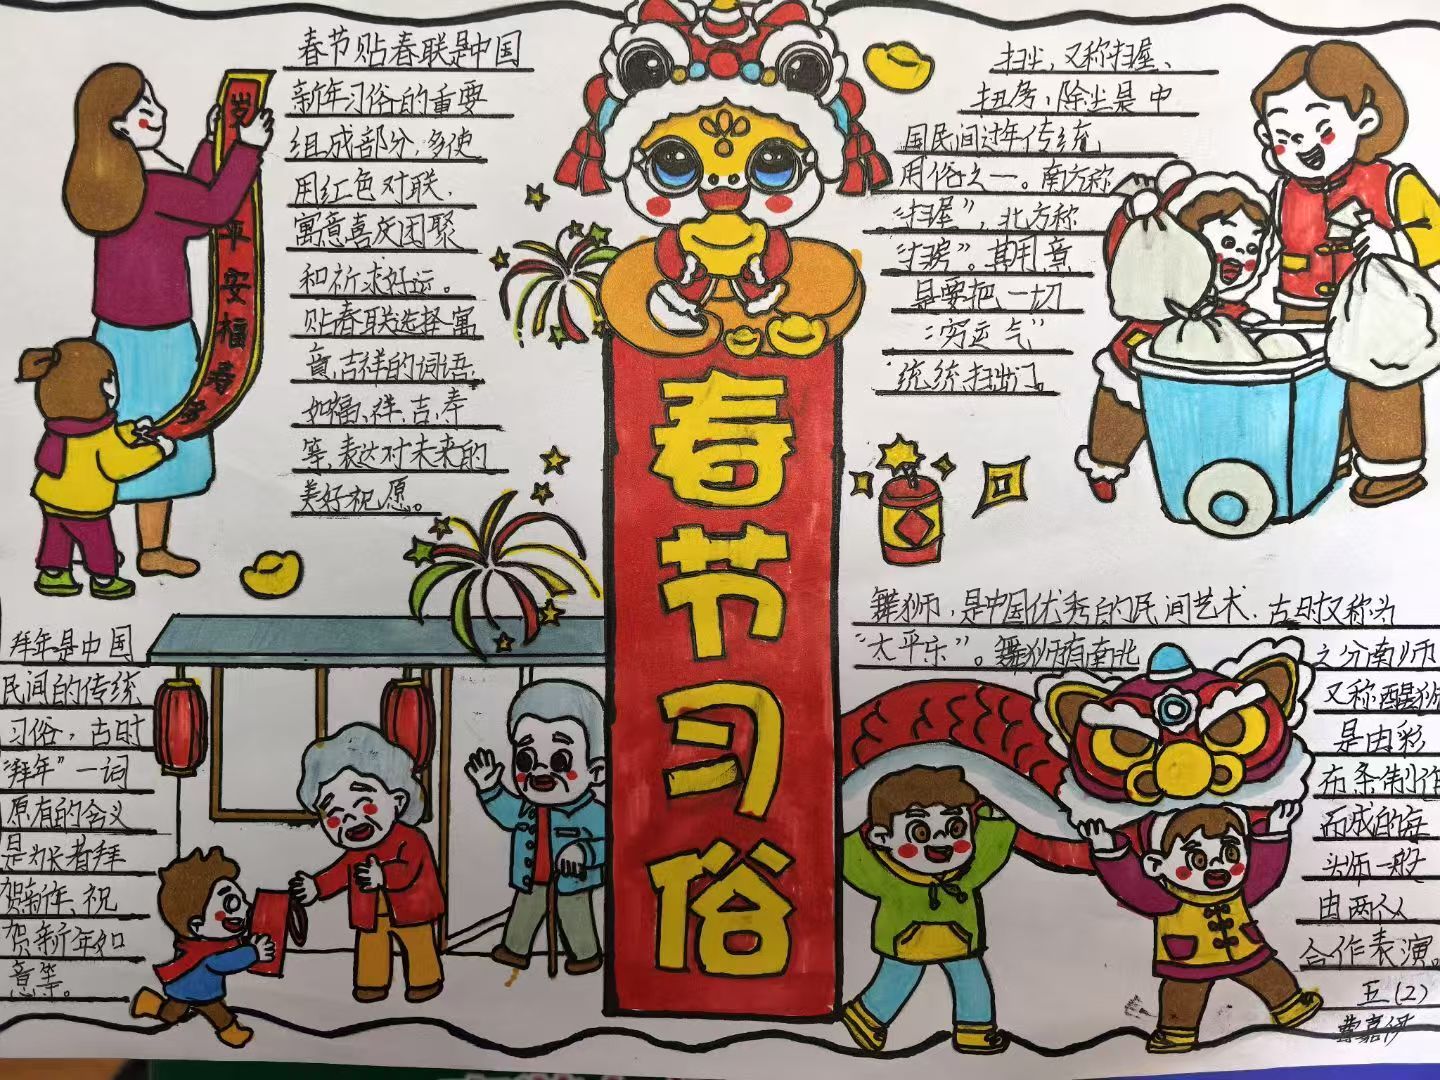 春节贴春联是中国
新年习俗的重要
组成部分,多使
用红色对联,
寓意喜庆团聚
和祈求好运。
贴春联选择寓
意吉祥的词语,
如福、祥、吉、奉
等,表达对未来的
美好祝愿。
岁
平
安
福
寿
春
节
习
俗
扫尘,又称扫屋、
扫房,除尘是中
国民间过年传统
用俗之一。南方称
“扫屋”,北方称
“扫房”。其用意
是要把一切
“穷运气”
统统扫出门。
拜年是中国
民间的传统
习俗,古时
“拜年”一词
原有的含义
是为长者拜
贺新年、祝
贺新年如
意等。
舞狮,是中国优秀的民间艺术,古时又称为
“太平乐”。舞狮有南北
之分南狮
又称醒狮
是由彩
布条制作
而成的每
头狮一般
由两个人
合作表演。
五(2)
曹嘉伊